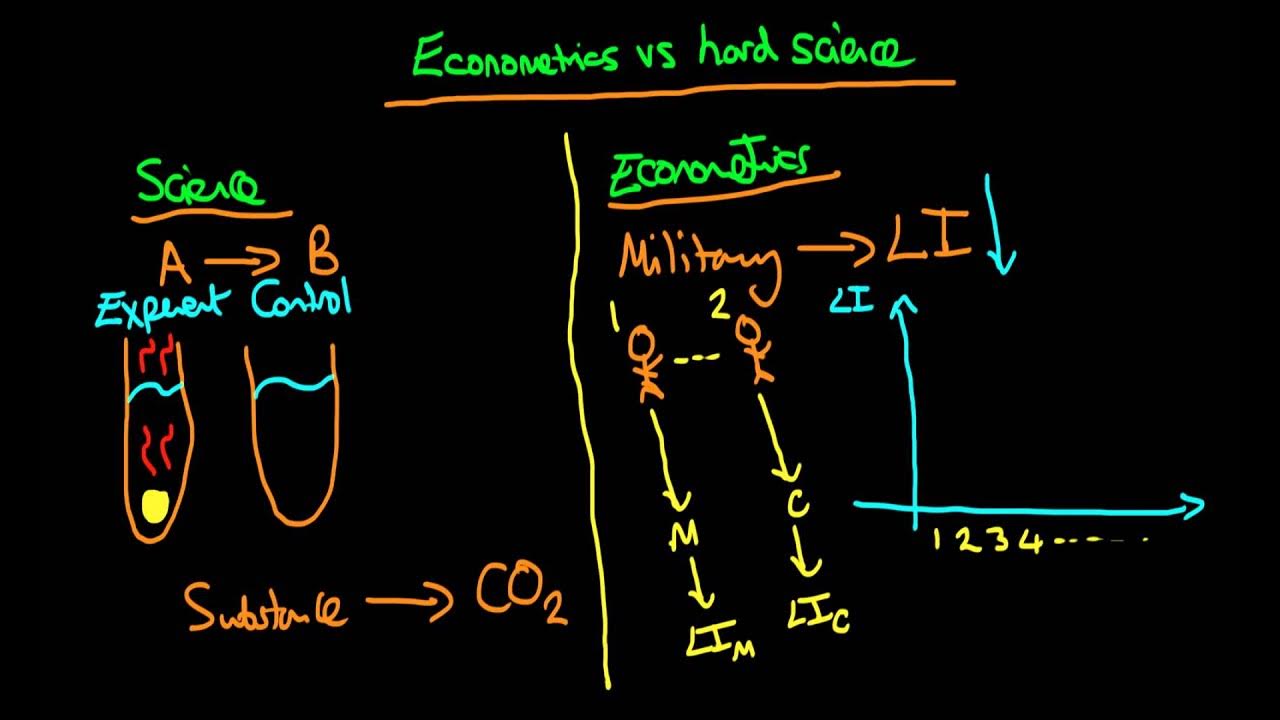 Econometrics vs hard science
Science
A → B
Experent Control
Substance → CO₂
Econometrics
Military → LI ↓
1 2
LI
M
C
LI_M
LI_C
1 2 3 4 ------